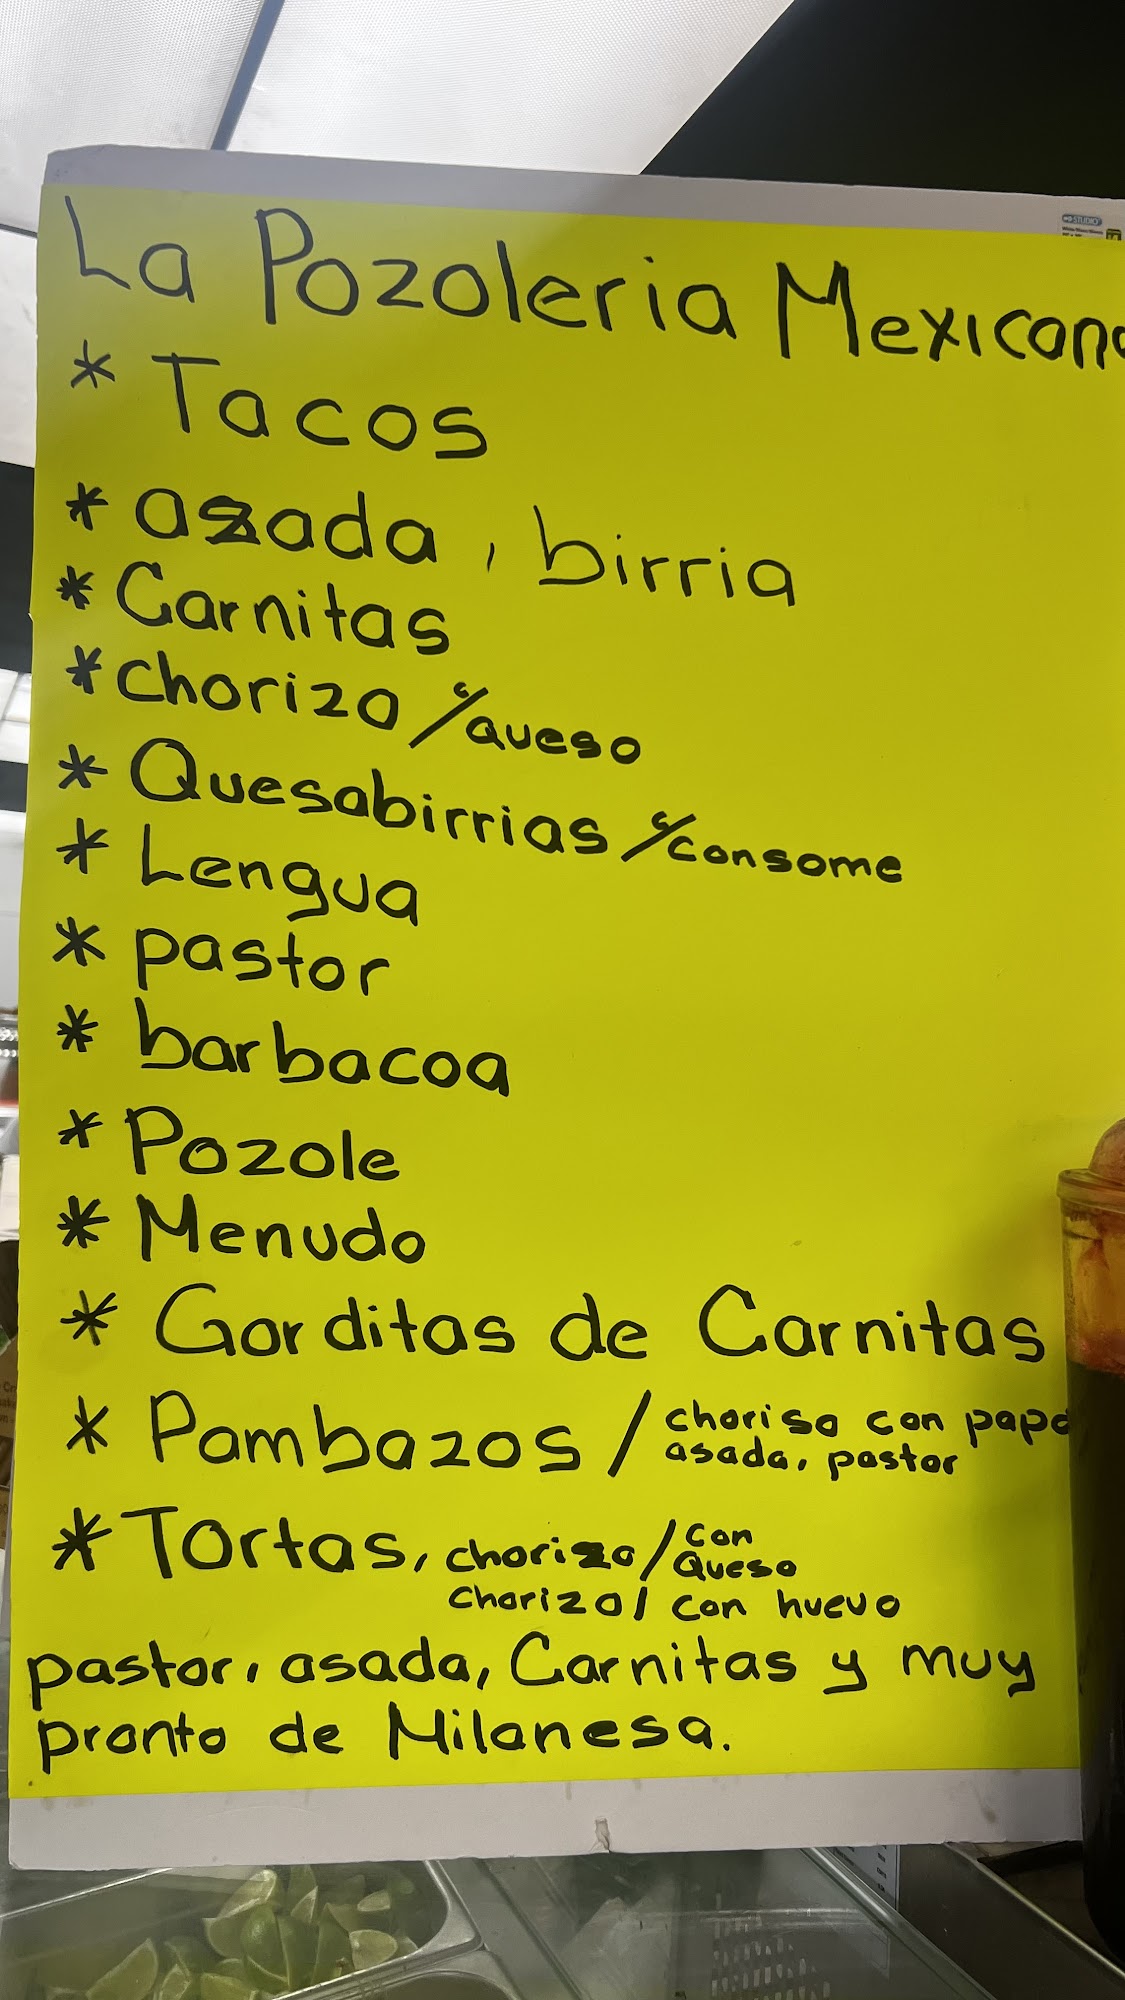 La Pozoleria Mexicana
* Tacos
* asada, birria
* Carnitas
* chorizo c/queso
* Quesabirrias c/consome
* Lengua
* pastor
* barbacoa
* Pozole
* Menudo
* Gorditas de Carnitas
* Pambazos / choriso con papa
asada, pastor
* Tortas, chorizo / con queso
chorizo / con huevo
pastor, asada, Carnitas y muy
pronto de Milanesa.
STUDIO